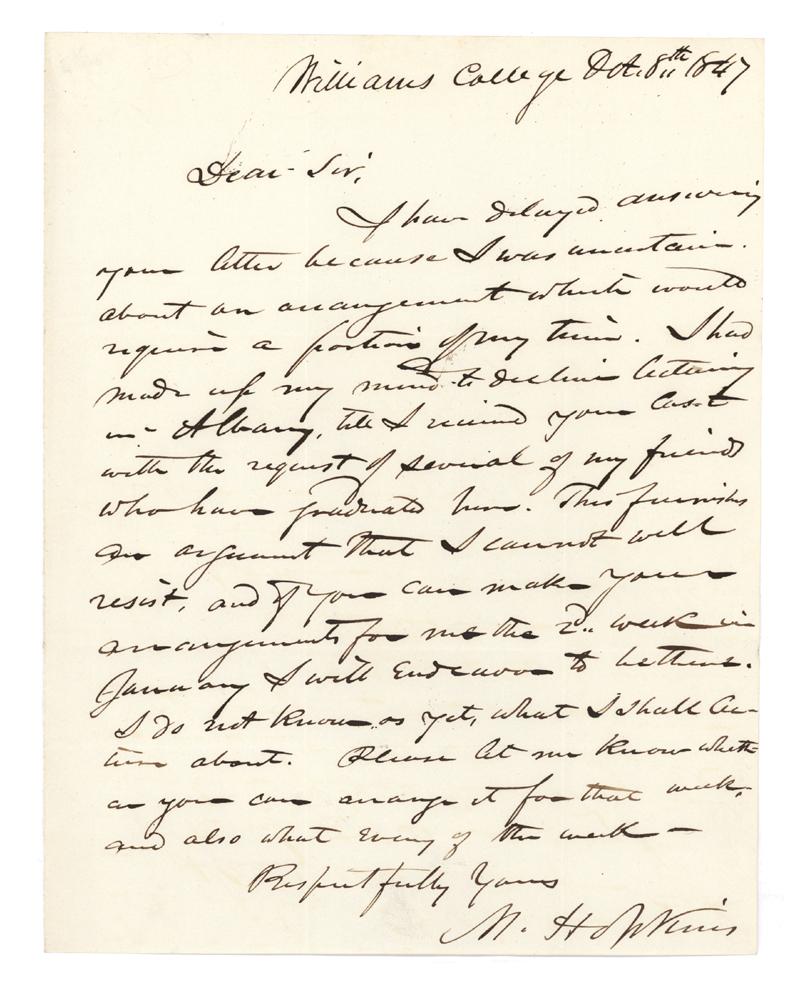 Williams College Oct. 8th 1847
Dear Sir,
I have delayed answering
your letter because I was uncertain
about an arrangement which would
require a portion of my time. I had
made up my mind to decline lecturing
in Albany, till I received your last
with the request of several of my friends
who have graduated here. This furnishes
an argument that I cannot well
resist, and if you can make your
arrangements for me the 2d week in
January I will endeavor to be there.
I do not know as yet, what I shall lec-
ture about. Please let me know wheth-
er you can arrange it for that week,
and also what eveng of the week —
Respectfully Yours
M. Hopkins